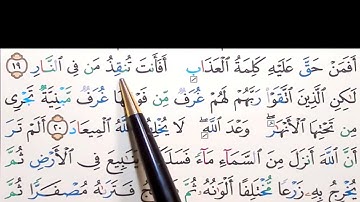 أَفَمَنْ حَقَّ عَلَيْهِ كَلِمَةُ الْعَذَابِ أَفَأَنتَ تُنقِذُ مَن فِى النَّارِ ١٩
لَٰكِنِ الَّذِينَ اتَّقَوْا۟ رَبَّهُمْ لَهُمْ غُرَفٌ مِّن فَوْقِهَا غُرَفٌ مَّبْنِيَّةٌ تَجْرِى
مِن تَحْتِهَا الْأَنْهَٰرُ وَعْدَ اللَّهِ لَا يُخْلِفُ الْمِيعَادَ ٢٠ أَلَمْ تَرَ
أَنَّ اللَّهَ أَنزَلَ مِنَ السَّمَآءِ مَآءً يَنَٰبِيعَ فِى الْأَرْضِ ثُمَّ
يُخْرِجُ بِهِۦ زَرْعًا مُّخْتَلِفًا أَلْوَٰنُهُۥ ثُمَّ فَتَرَىٰهُ مُصْفَرًّا ثُمَّ